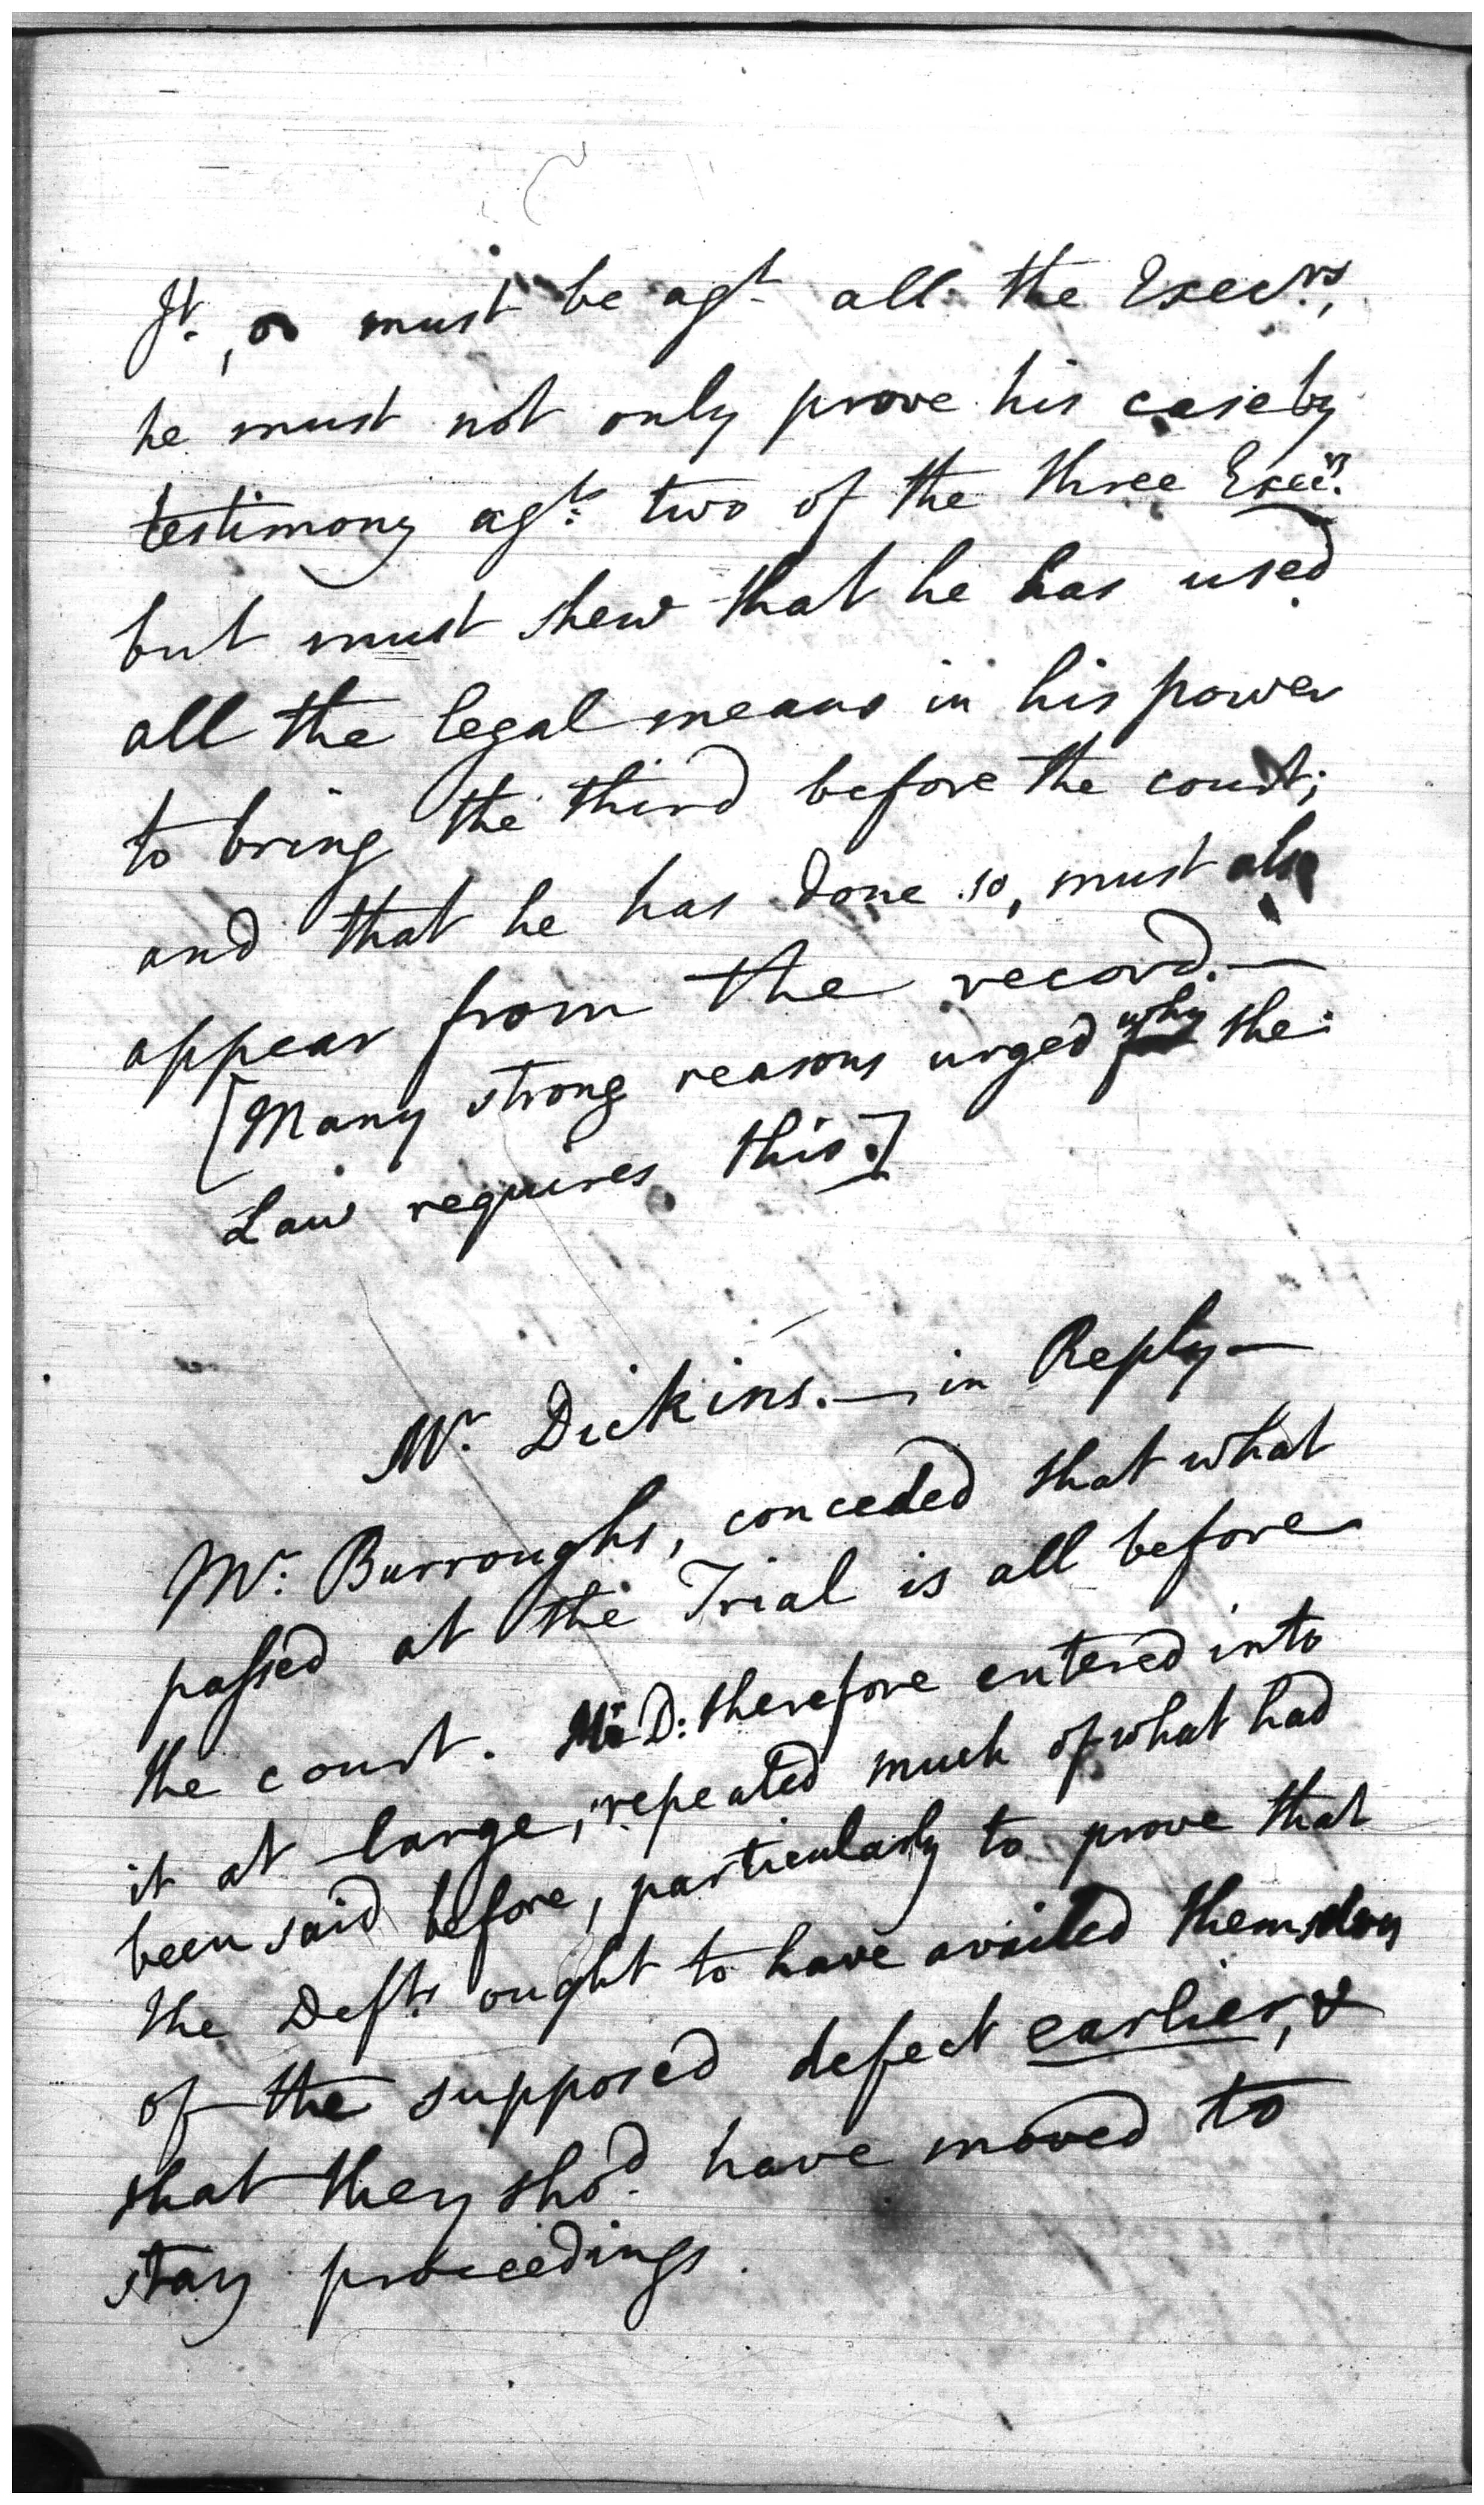 Jt., must be agt. all the Execrs.,
he must not only prove his case by
testimony agt. two of the three Execrs.
but must shew that he has used
all the legal means in his power
to bring the third before the court;
and that he has done so, must also
appear from the record.—
[Many strong reasons urged why the
Law requires this.]
Mr. Dickins.—in Reply—
Mr. Burroughs, conceded that what
passed at the Trial is all before
the court. Mr. D: therefore entered into
it at large, repeated much of what had
been said before, particularly to prove that
the Defts. ought to have availed themselves
of the supposed defect earlier, &
that they shod. have moved to
stay proceedings.